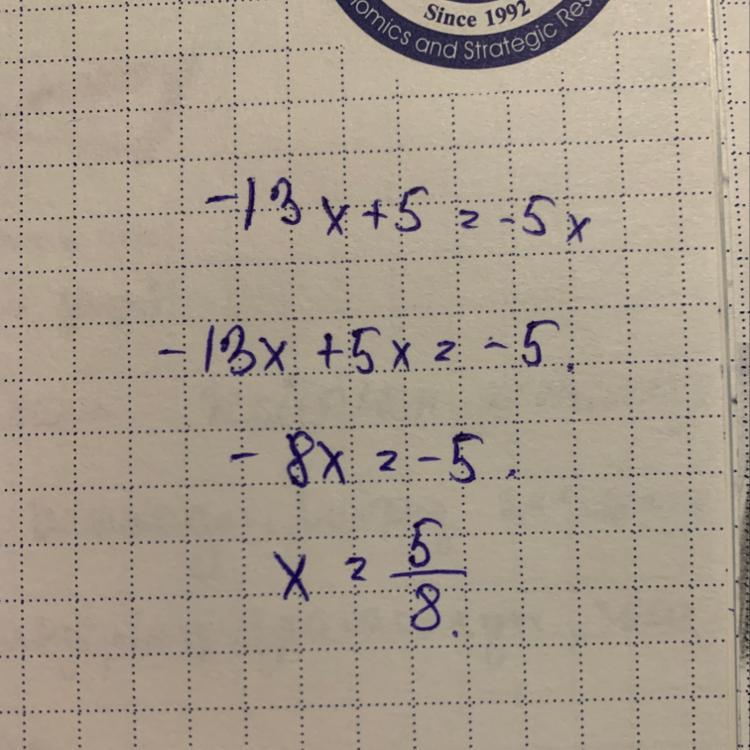 Since 1992
nomics and Strategic Res
-13x+5=-5x
-13x+5x=-5.
-8x=-5.
x=5/8.